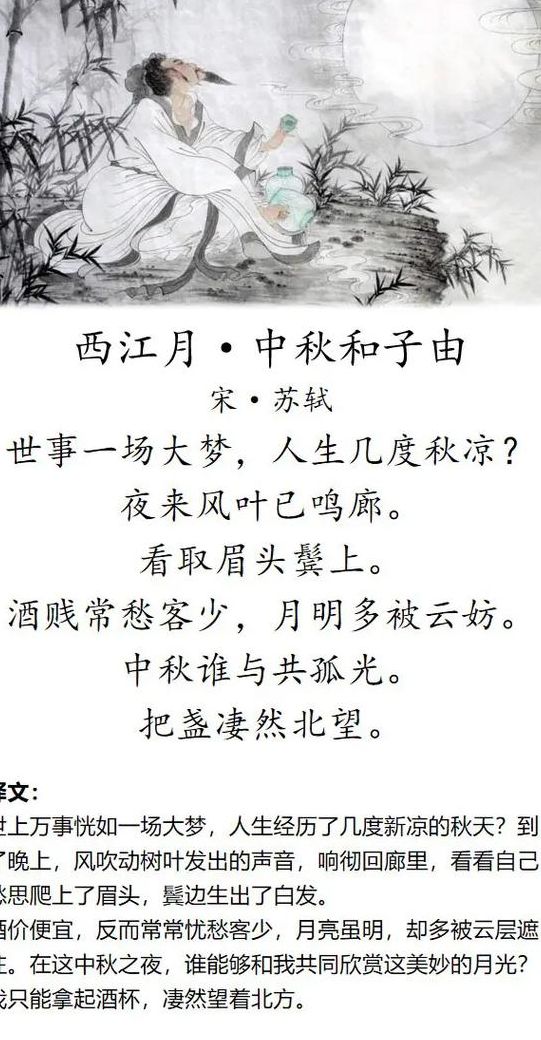 西江月·中秋和子由
宋·苏轼
世事一场大梦，人生几度秋凉？
夜来风叶已鸣廊。
看取眉头鬓上。
酒贱常愁客少，月明多被云妨。
中秋谁与共孤光。
把盏凄然北望。
译文：
世上万事恍如一场大梦，人生经历了几度新凉的秋天？到
了晚上，风吹动树叶发出的声音，响彻回廊里，看看自己
愁思爬上了眉头，鬓边生出了白发。
酒价便宜，反而常常忧愁客少，月亮虽明，却多被云层遮
住。在这中秋之夜，谁能够和我共同欣赏这美妙的月光？
我只能拿起酒杯，凄然望着北方。